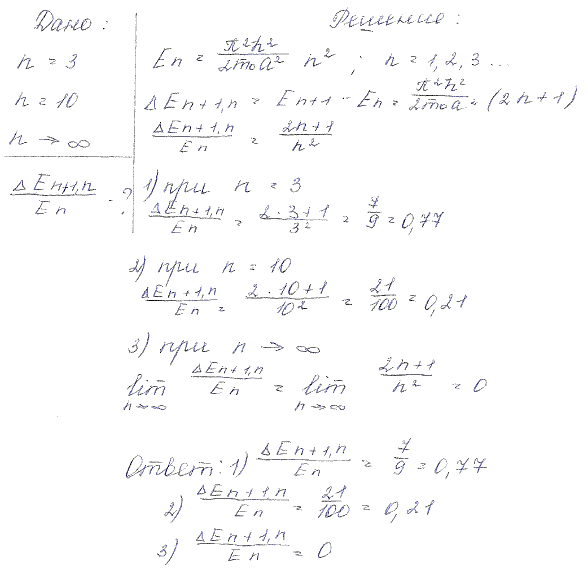 Дано:
n = 3
n = 10
n → ∞
ΔEn+1,n / En - ?
Решение:
En = π²ħ² / 2m₀a² n² ; n = 1, 2, 3 ...
ΔEn+1,n = En+1 - En = π²ħ² / 2m₀a² (2n+1)
ΔEn+1,n / En = 2n+1 / n²
1) при n = 3
ΔEn+1,n / En = 2·3+1 / 3² = 7/9 = 0,77
2) при n = 10
ΔEn+1,n / En = 2·10+1 / 10² = 21/100 = 0,21
3) при n → ∞
lim n→∞ ΔEn+1,n / En = lim n→∞ 2n+1 / n² = 0
Ответ: 1) ΔEn+1,n / En = 7/9 = 0,77
2) ΔEn+1,n / En = 21/100 = 0,21
3) ΔEn+1,n / En = 0